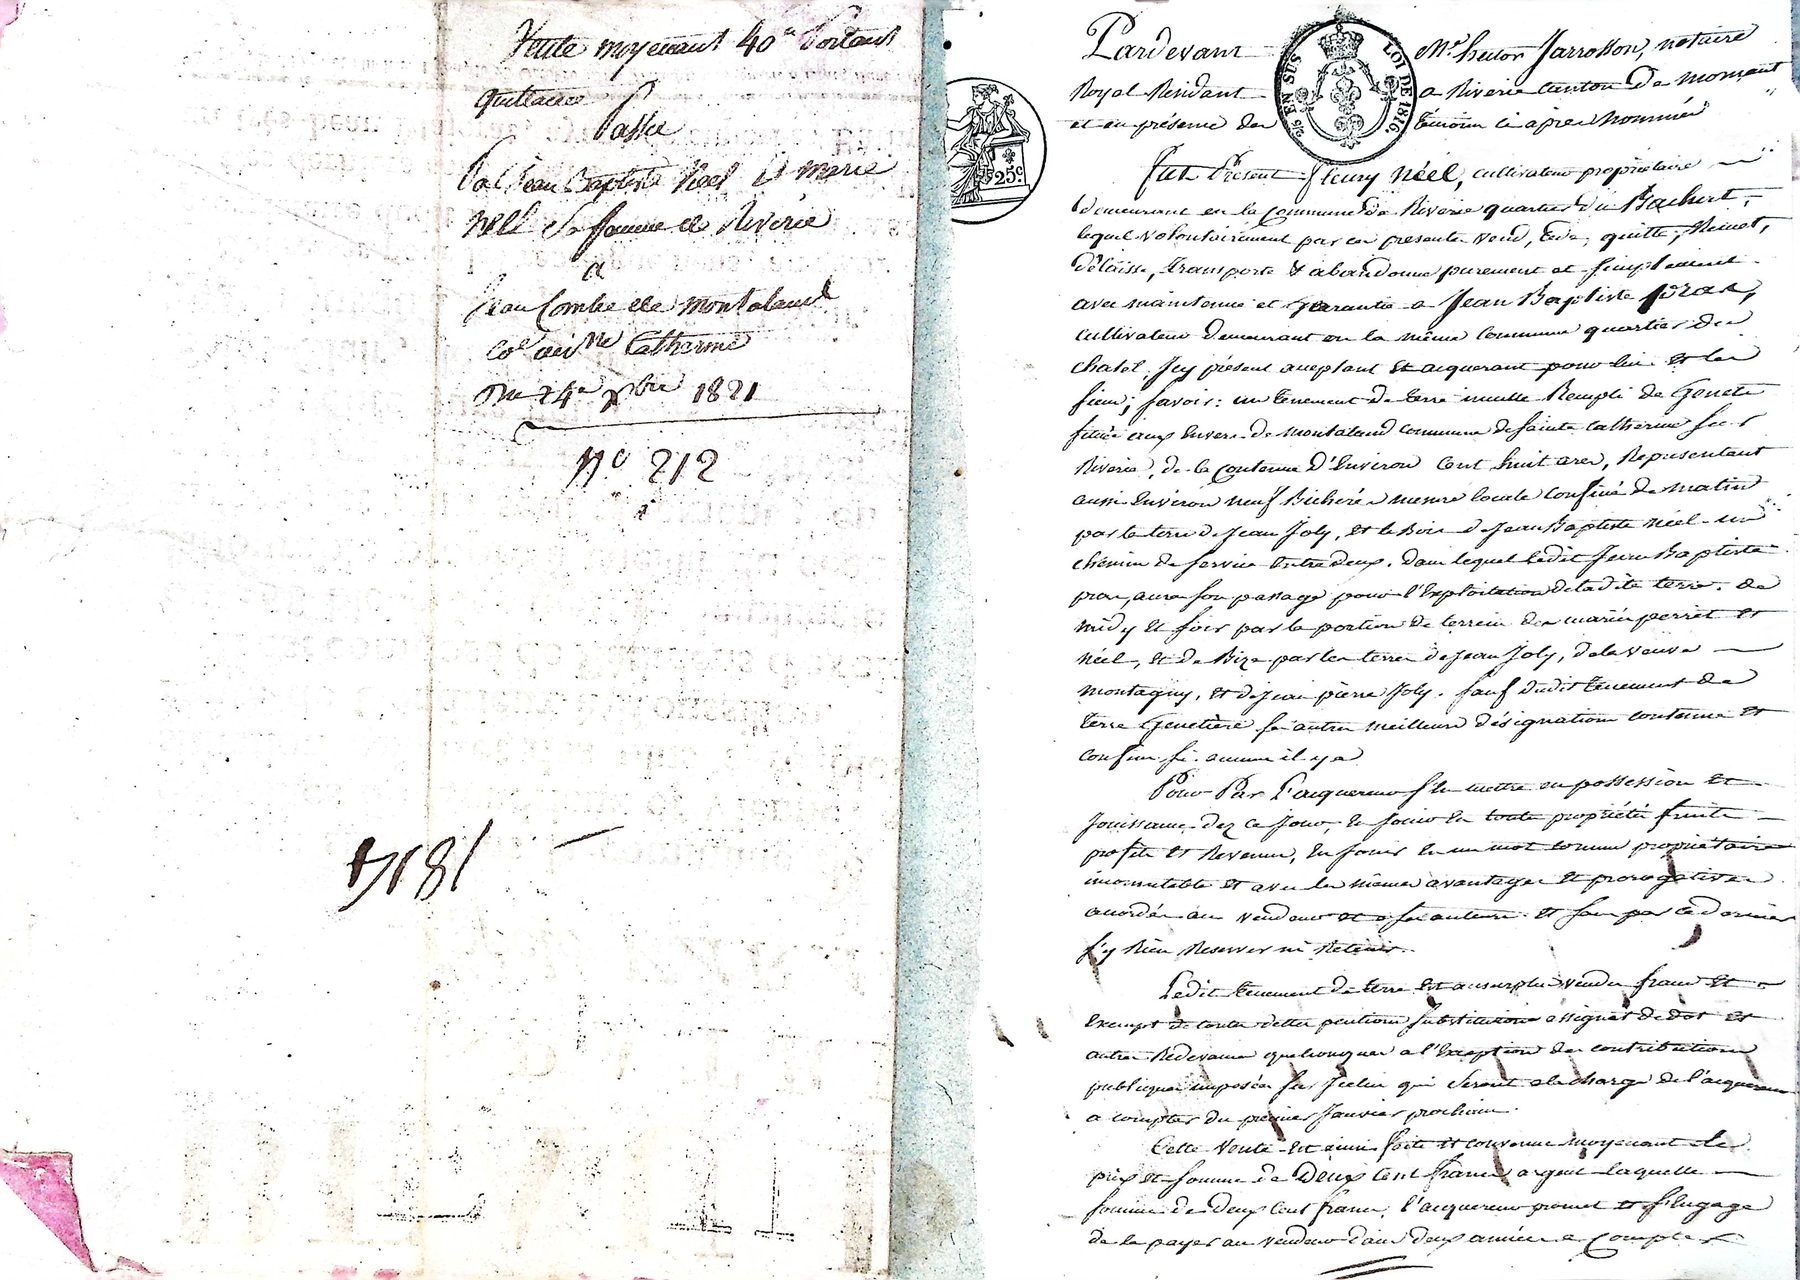 Vente moyenant 40# Portant
quittance
Passée
Par Jean Baptiste Néel & marie
Néel Sa femme de Riverie
a
Jean Combe de montaland
Catherine
Du 24e xbre 1821
No 212
1814
Pardevant Me hector Jarrosson, notaire
Royal Résidant a Riverie canton de mornant
et en présence des témoins ci après nommés
25 c.
25 EN SUS
LOI DE 1816
Fut Présent fleury Néel, cultivateur propriétaire
demeurant en la Commune de Riverie quartier du Bachert,
lequel volontairement par ces présentes vend, cède, quitte, Remet,
délaisse, transporte & abandonne purement et simplement
avec maintenue et Garantie a Jean Baptiste
cultivateur demeurant en la même commune quartier du
chatel Icy présent aceptant et aquerant pour lui et les
siens; savoir: un tenement de terre inculte Rempli de Genets
situé aux Envers de montaland commune de sainte Catherine sur
Riverie, de la Contenue d'Environ Cent huit ares, Représentant
aussi Environ neuf Bicherées mesure locale confiné de matin
par la terre de Jean Joly, et le Bois de Jean Baptiste Néel un
chemin de service Entredeux, dans lequel ledit Jean Baptiste
aura son passage pour l'Exploitation de ladite terre. de
midy et soir par la portion de terrein des mariés perret et
Néel, et de Bize par les terres de Jean Joly, de la veuve
montagny, et de Jean pierre Joly. sauf dudit tenement de
terre Genetière ses autres meilleurs désignations contenue et
confins si aucuns il y a
Pour Par L'aquereur s'en mettre en possession et
Jouissance dez ce Jour, en Jouir En toute propriété fruits
profits et Revenus, En Jouir En un mot comme propriétaire
incomutable et avec les mêmes avantages et prérogatives
acordés au vendeur et a ses auteurs et sans par ce dernier
s'y Rien Reserver ni Retenir.
Ledit tenement de terre est au surplus vendu franc et
exempt de toutes dettes pentions substitutions assignat de dot et
autres Redevances quelconques a l'Exception des contributions
publiques imposées sur Icelui qui seront a la charge de l'aquereur
a compter du premier Janvier prochain.
Cette vente est ainsi faite et convenue moyenant le
prix et somme de Deux Cent francs argent laquelle
somme de deux Cent francs, l'acquereur promet et s'Engage
de la payer au vendeur dans deux années a Compter